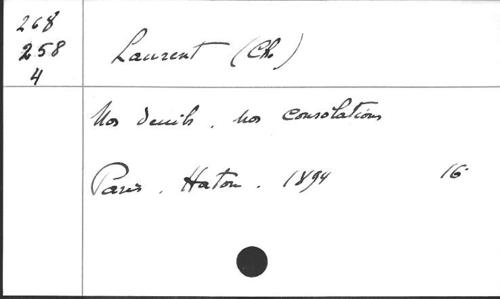 268
258
4
Laurent (Ch.)
Nos deuils. Nos consolations
Paris. Haton. 1894 16°